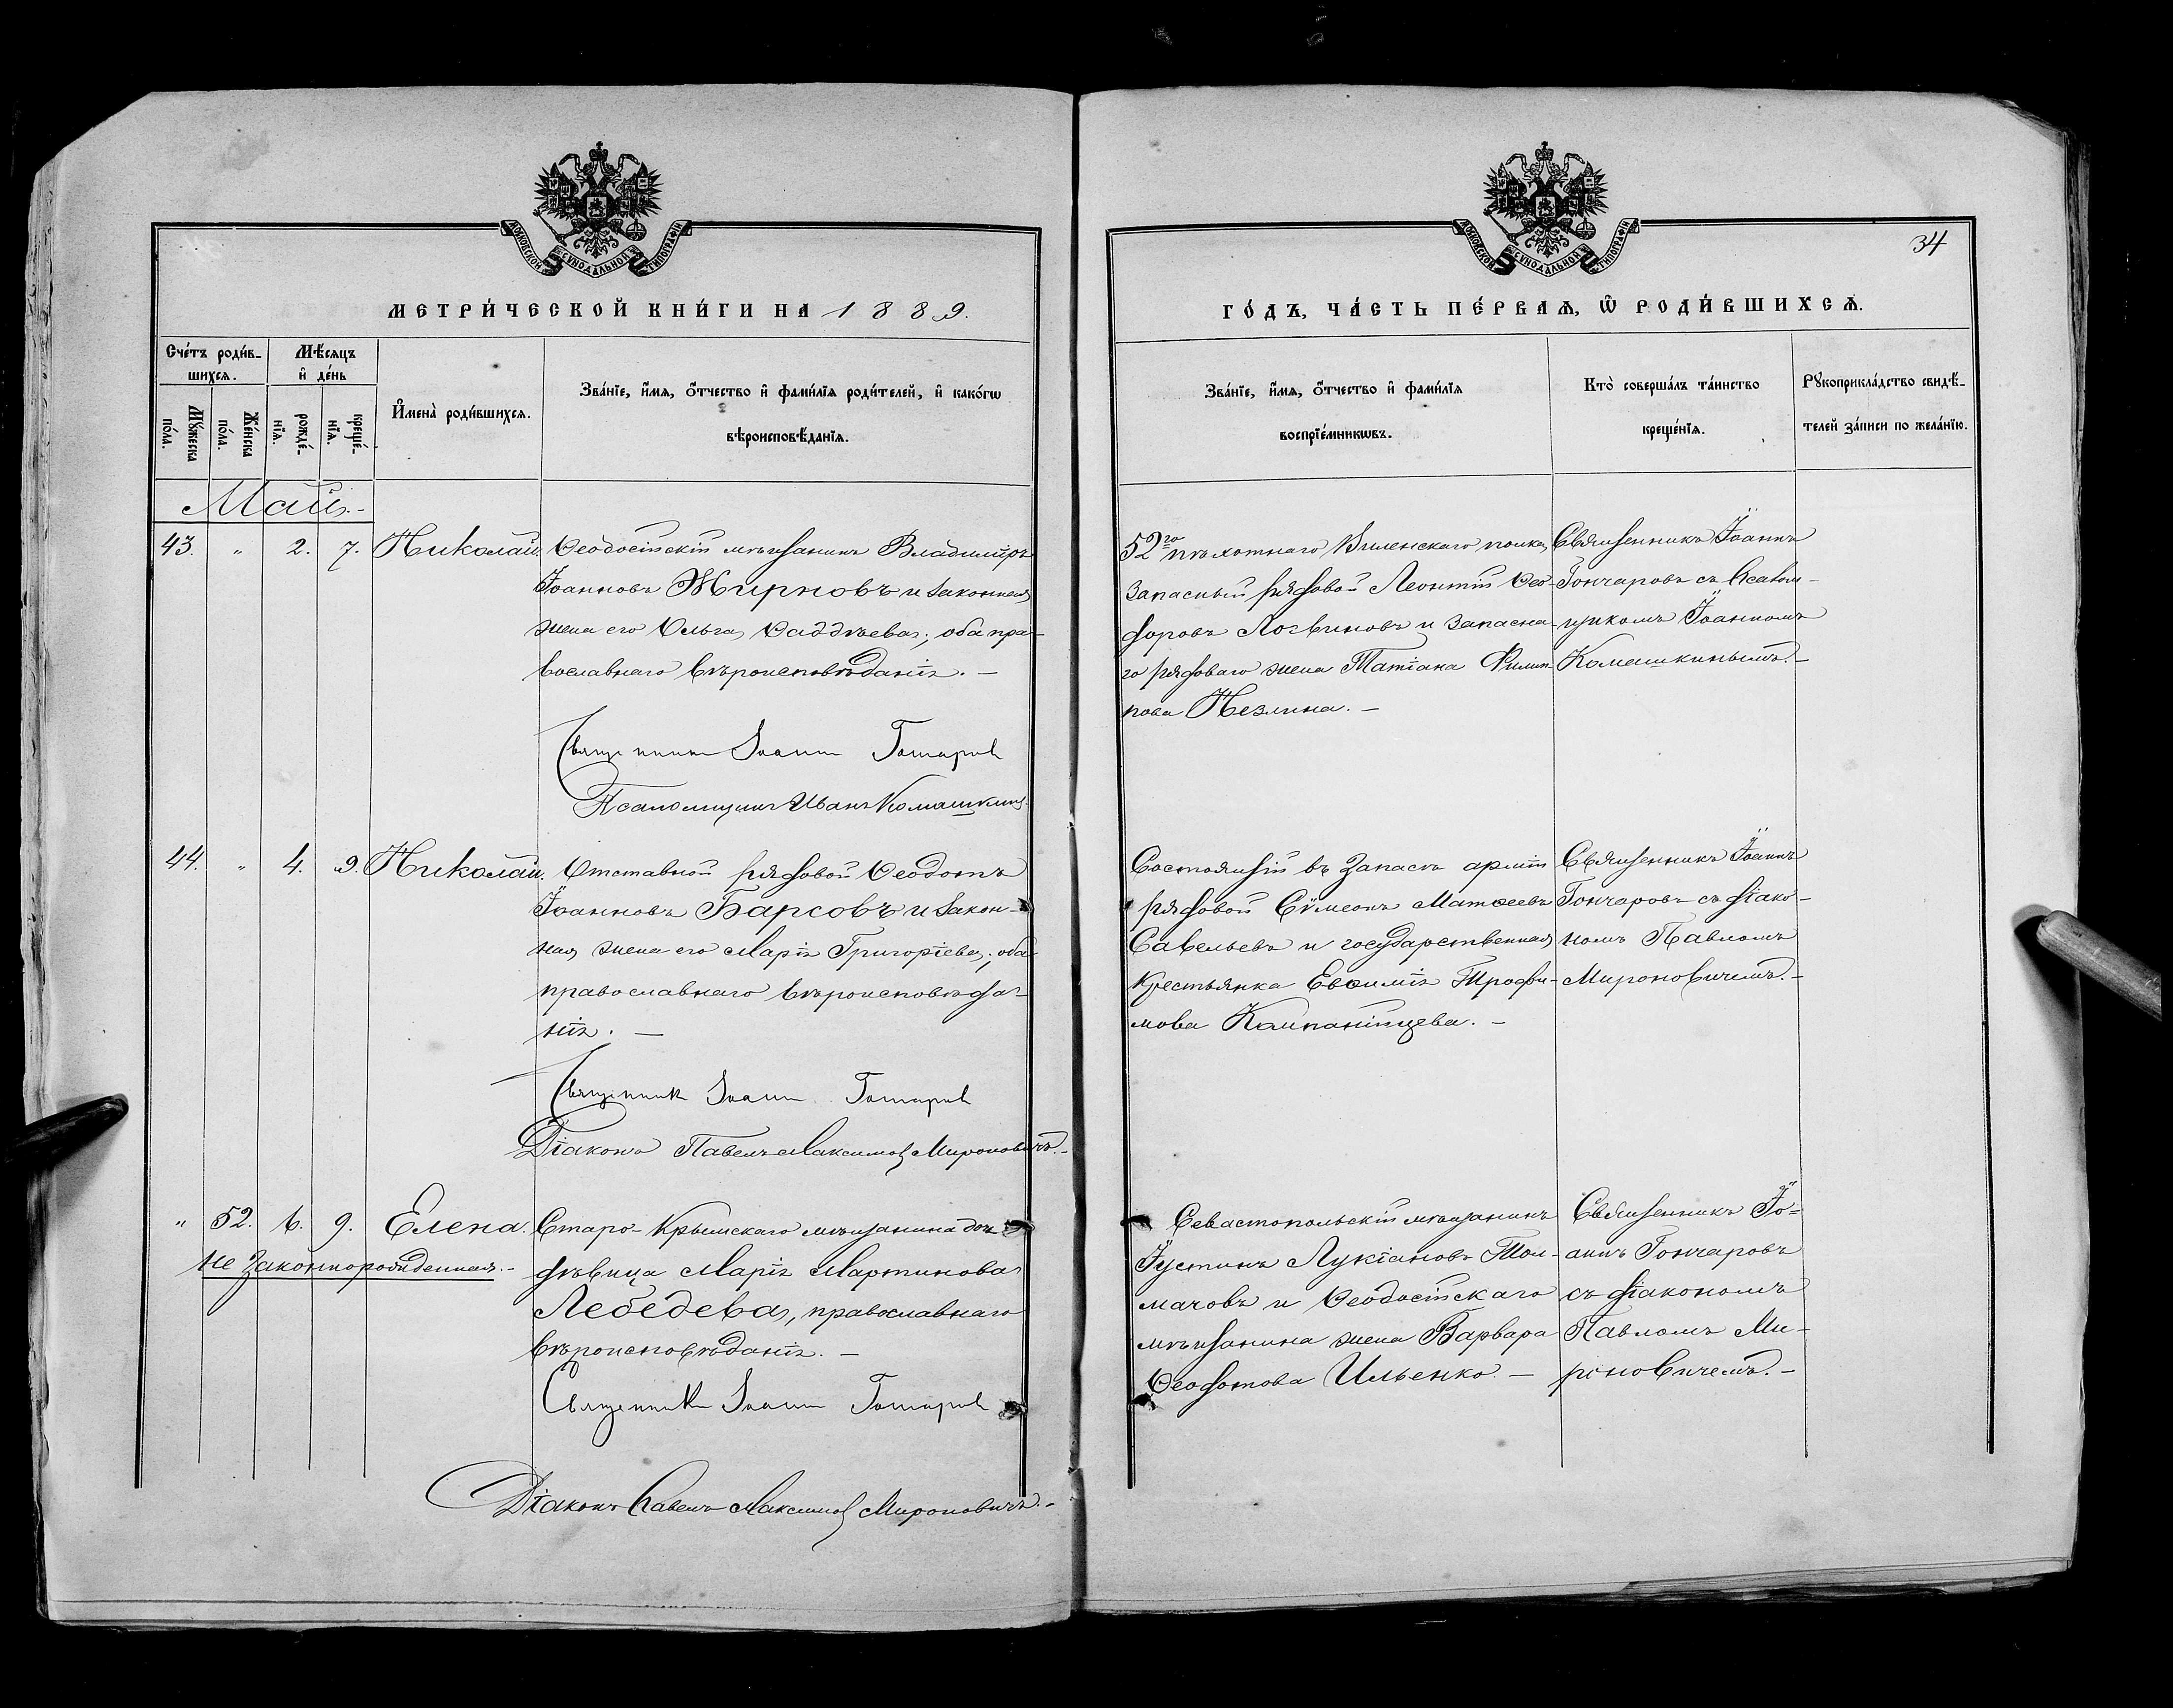 МОСКОВСКОЙ СѴНОДАЛЬНОЙ ТИПОГРАФІИ
МЕТРИ́ЧЕСКОЙ КНИ́ГИ НА 1889.
Сче́тъ роди́в-
шихсѧ.
Мѣ́сѧцъ
и҆ де́нь
Мꙋ́жеска
по́ла.
Же́нска
по́ла.
рожде́-
нїѧ.
креще́-
нїѧ.
И҆мена̀ роди́вшихсѧ.
Зва́нїе, и҆́мѧ, ѻ҆́тчество и҆ фами́лїѧ роди́телей, и҆ како́гѡ
вѣроисповѣ́данїѧ.
Май.-
43. " 2. 7. Николай. Ѳеодосійскій мѣщанинъ Владиміръ
Іоанновъ Жирновъ и законная
жена его Ольга Ѳаддѣева; оба пра-
вославнаго вѣроисповѣданія. —
Священникъ Іоаннъ Гончаровъ
Псаломщикъ Иванъ Комашкинъ.
44. " 4. 9. Николай. Отставной рядовой Ѳеодотъ
Іоанновъ Барсовъ и закон-
ная жена его Марія Григоріева; оба
православнаго вѣроисповѣда-
нія. —
Священникъ Іоаннъ Гончаровъ
Діаконъ Павелъ Максимов Мироновичъ.-
" 52. 6. 9. Елена. Старо-Крымскаго мѣщанина дочь
Незаконнорожденная.-
дѣвица Марія Мартинова
Лебедева, православнаго
вѣроисповѣданія. —
Священникъ Іоаннъ Гончаровъ
Діаконъ Павелъ Максимов Мироновичъ.-
МОСКОВСКОЙ СѴНОДАЛЬНОЙ ТИПОГРАФІИ
34
ГО́ДЪ, ЧА́СТЬ ПЕ́РВАѦ, Ѿ РОДИ́ВШИХСѦ.
Зва́нїе, и҆́мѧ, ѻ҆́тчество и҆ фами́лїѧ
воспрїе́мникѡвъ.
Кто̀ соверша́лъ та́инство
креще́нїѧ.
Рꙋкоприкла́дство свидѣ́-
телей за́писи по жела́нїю.
52го пѣхотнаго Виленскаго полка,
запасный рядовой Леонтій Ѳео-
доровъ Логвиновъ и запасна-
го рядоваго жена Татіана Филип-
пова Незлина. —
Священникъ Іоаннъ
Гончаровъ съ псалом-
щикомъ Іоанномъ
Комашкинымъ.-
Состоящій въ запасѣ арміи
рядовой Сѵмеонъ Матѳеевъ
Савельевъ и государственная
крестьянка Евѳимія Трофи-
мова Кампанійцева. —
Священникъ Іоаннъ
Гончаровъ съ діако-
номъ Павломъ
Мироновичемъ.-
Севастопольскій мѣщанинъ
Іустинъ Лукіановъ Тол-
мачовъ и Ѳеодосійскаго
мѣщанина жена Варвара
Ѳеодотова Ильенко. —
Священникъ Іо-
аннъ Гончаровъ
съ діакономъ
Павломъ Ми-
роновичемъ.-